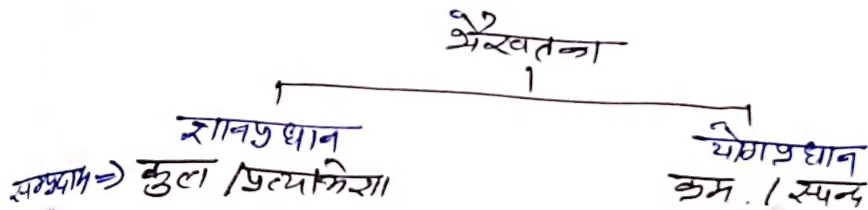 भैरवतन्त्र
ज्ञानप्रधान योगप्रधान
सम्प्रदाय => कुल / प्रत्यभिज्ञा क्रम. / स्पन्द